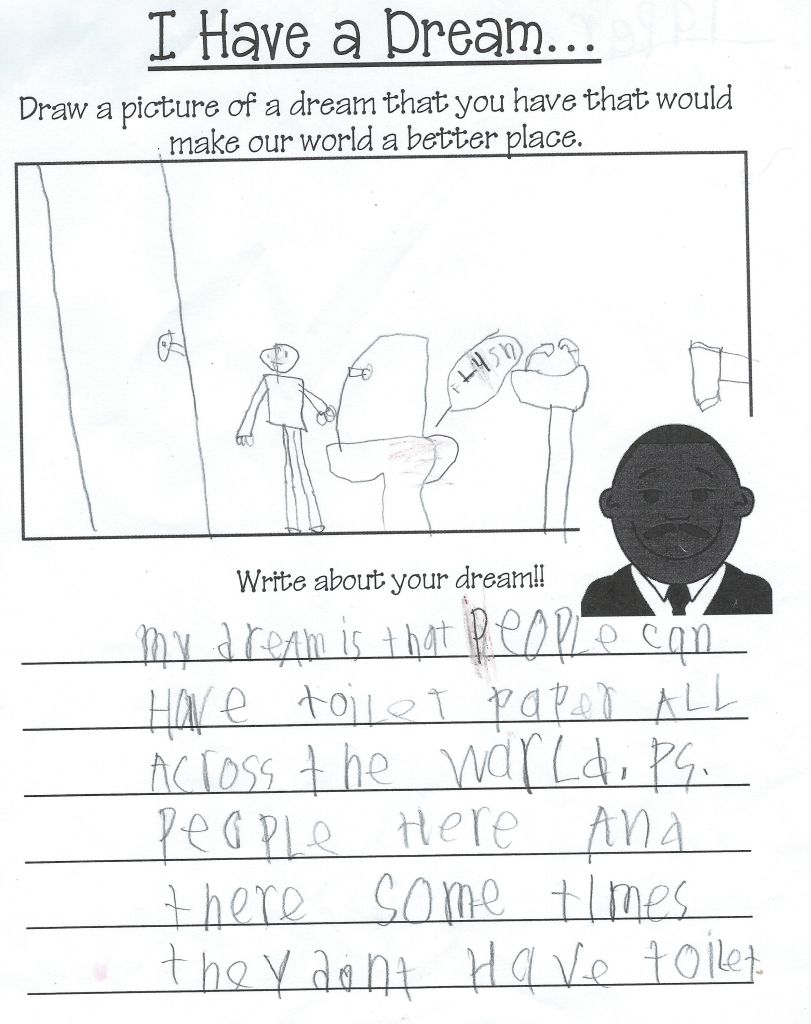 I Have a Dream...
Draw a picture of a dream that you have that would
make our world a better place.
FLUSH
Write about your dream!!
my dream is that PEOPLe can
Have toilet paper ALL
Across the world. PS.
PeoPLe Here And
there some times
they dont Have toilet.